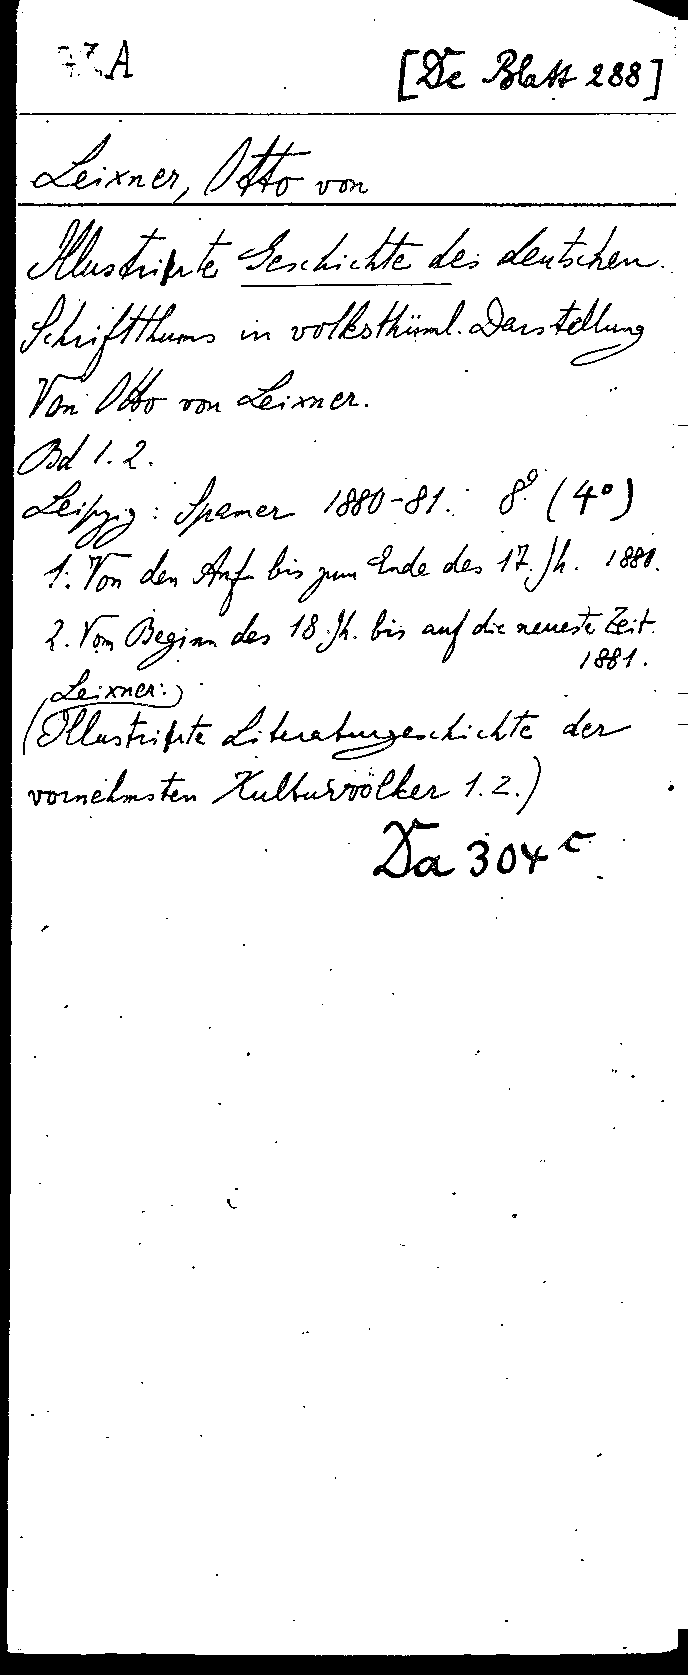 A [De Blatt 288]
Leixner, Otto von
Illustrirte Geschichte des deutschen
Schriftthums in volksthüml. Darstellung
Von Otto von Leixner.
Bd 1. 2.
Leipzig: Spamer 1880-81. 8° (4°)
1. Von den Anf. bis zum Ende des 17. Jh. 1880.
2. Vom Beginn des 18. Jh. bis auf die neueste Zeit.
1881.
Leixner:
(Illustrirte Literaturgeschichte der
vornehmsten Kulturvölker 1. 2.)
Da 304 c